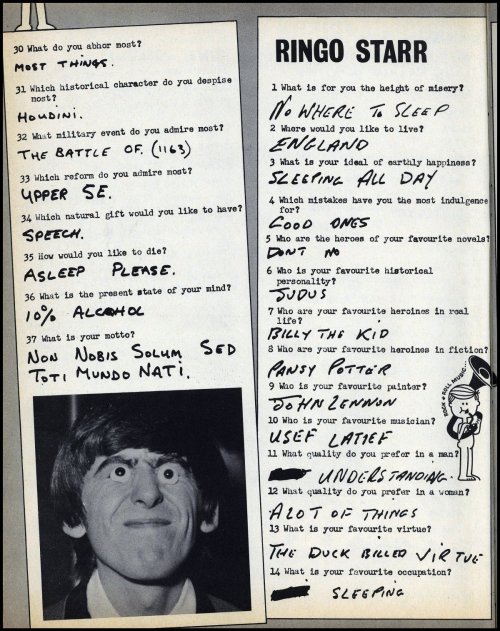 30 What do you abhor most?
MOST THINGS.
31 Which historical character do you despise
most?
HOUDINI.
32 What military event do you admire most?
THE BATTLE OF. (1163)
33 Which reform do you admire most?
UPPER SE.
34 Which natural gift would you like to have?
SPEECH.
35 How would you like to die?
ASLEEP PLEASE.
36 What is the present state of your mind?
10% ALCOHOL
37 What is your motto?
NON NOBIS SOLUM SED
TOTI MUNDO NATI.
RINGO STARR
1 What is for you the height of misery?
NO WHERE TO SLEEP
2 Where would you like to live?
ENGLAND
3 What is your ideal of earthly happiness?
SLEEPING ALL DAY
4 Which mistakes have you the most indulgence
for?
GOOD ONES
5 Who are the heroes of your favourite novels?
DONT NO
6 Who is your favourite historical
personality?
JUDUS
7 Who are your favourite heroines in real
life?
BILLY THE KID
8 Who are your favourite heroines in fiction?
PANSY POTTER
9 Who is your favourite painter?
JOHN LENNON
10 Who is your favourite musician?
USEF LATIEF
11 What quality do you prefer in a man?
UNDERSTANDING.
12 What quality do you prefer in a woman?
A LOT OF THINGS
13 What is your favourite virtue?
THE DUCK BILLED VIRTUE
14 What is your favourite occupation?
SLEEPING
ROCK & ROLL MUSIC